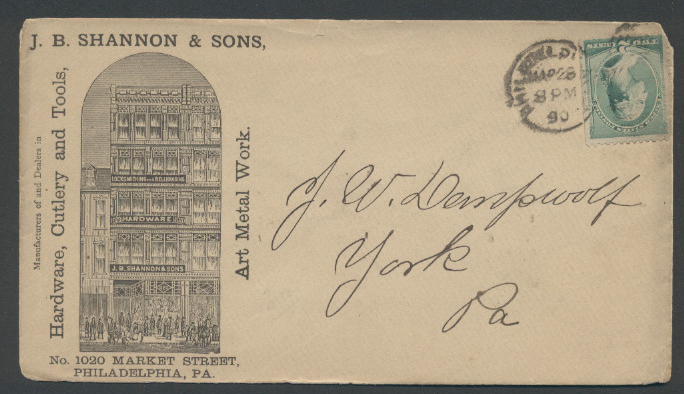 J. B. SHANNON & SONS,
Manufacturers of and Dealers in
Hardware, Cutlery and Tools,
HARDWARE
J.B. SHANNON & SONS
Art Metal Work.
No. 1020 MARKET STREET,
PHILADELPHIA, PA.
8 PM
90
J. W. Dempwolf
York
Pa